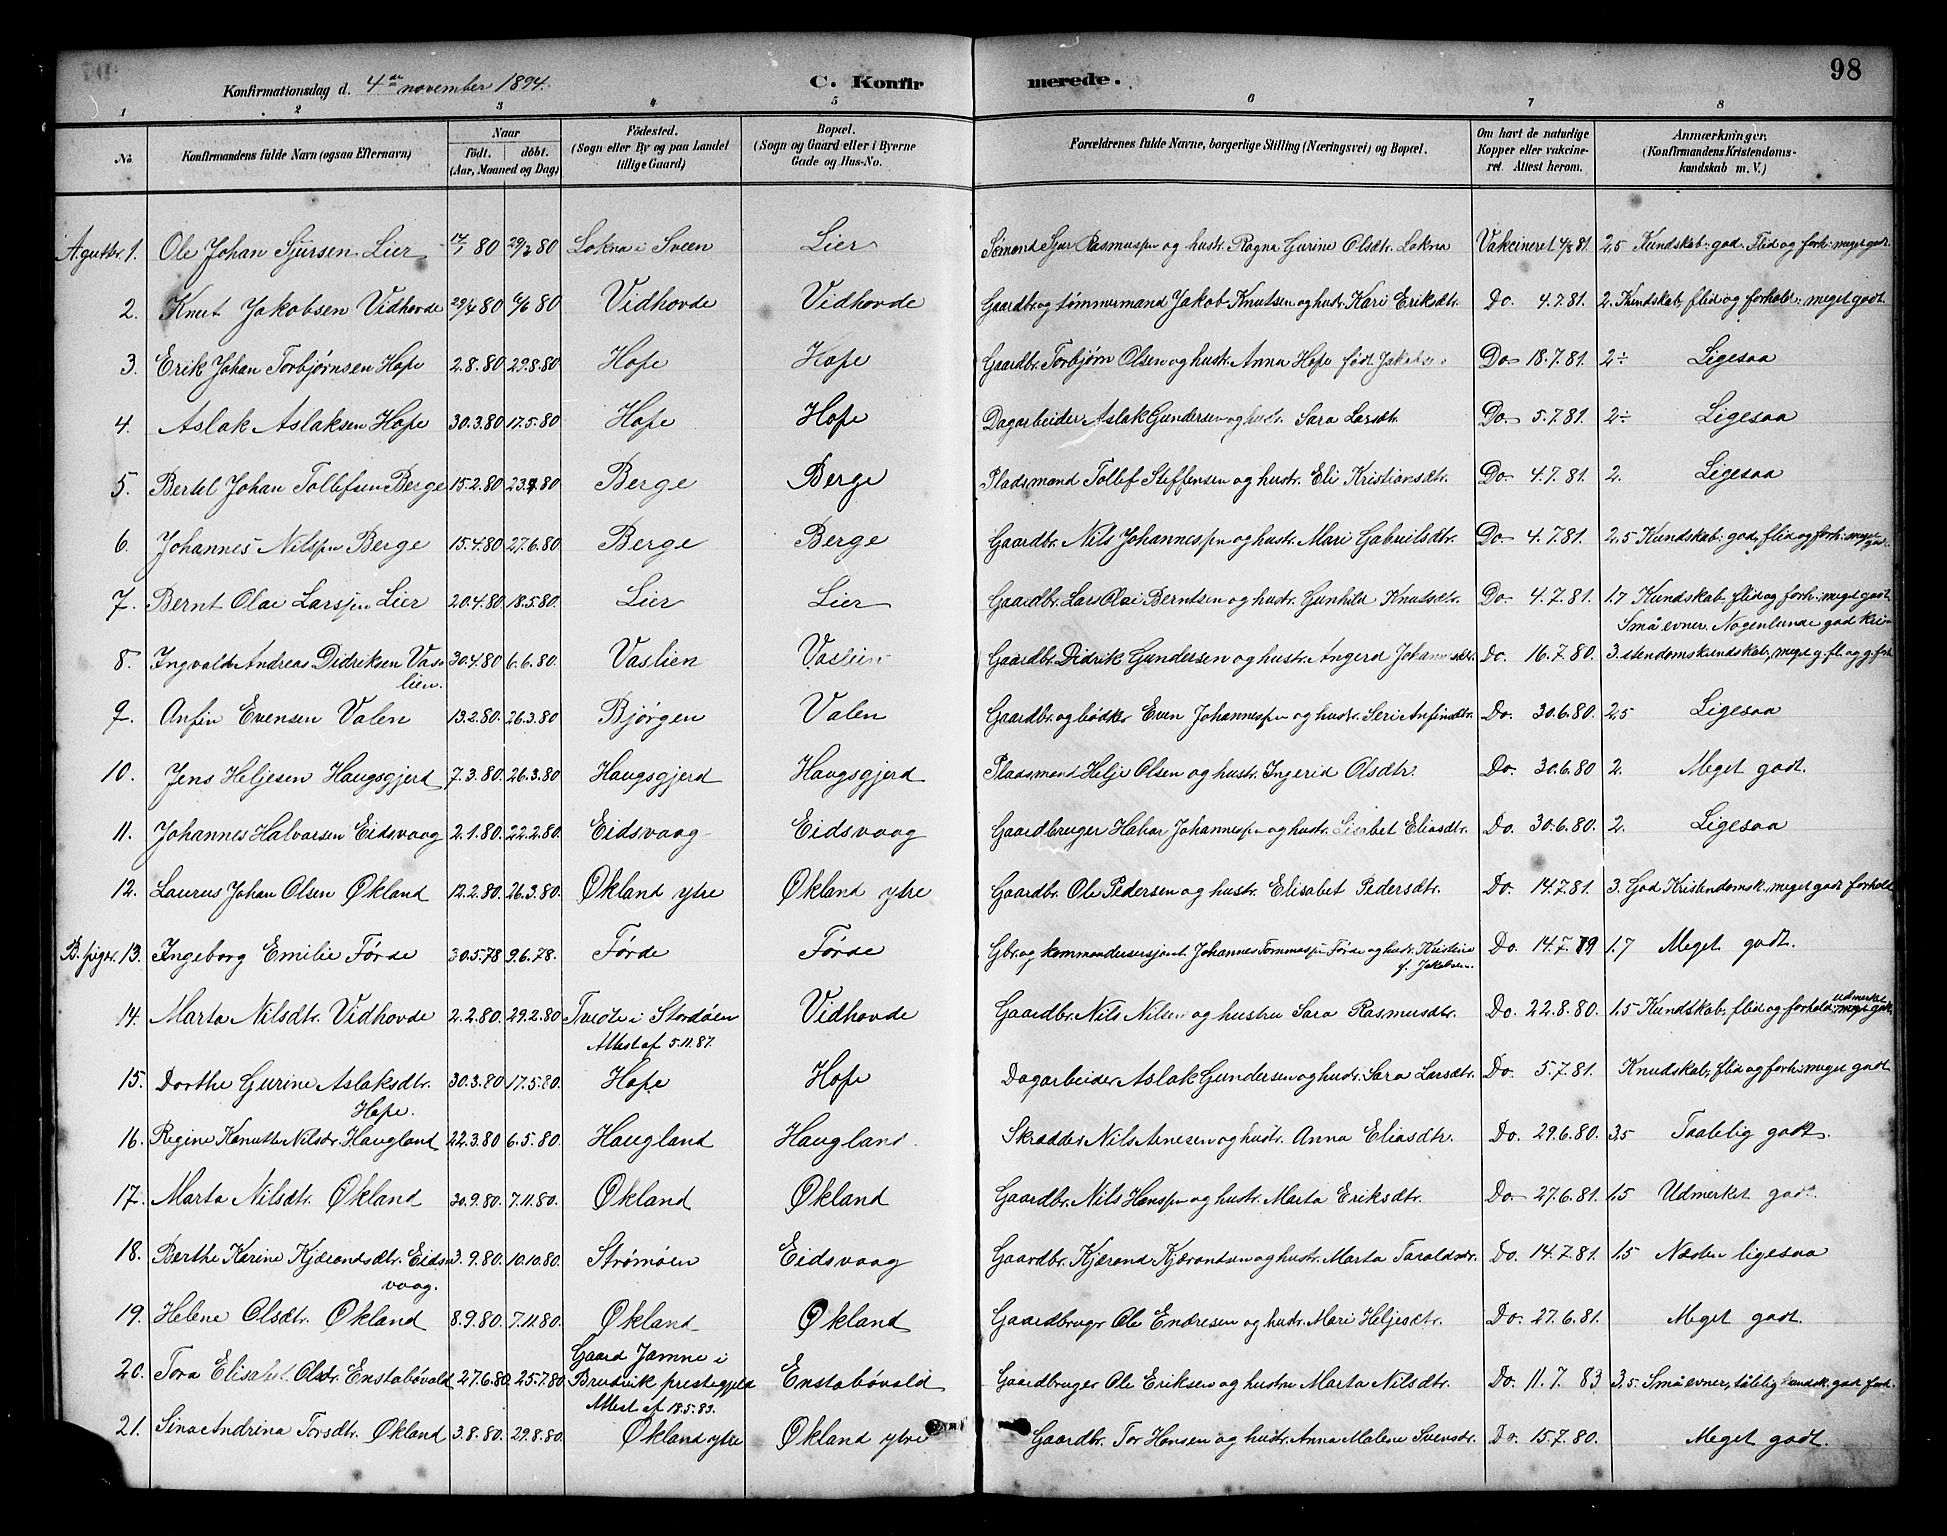 98
Konfirmationsdag d. 4de november 1894. C. Konfirmerede.
1 2 3 4 5 6 7 8
No. Konfirmandens fulde Navn (ogsaa Efternavn) Naar født. døbt. (Aar, Maaned og Dag) Fødested. (Sogn eller By og paa Landet tillige Gaard) Bopæl. (Sogn og Gaard eller i Byerne Gade og Hus-No. Forældrenes fulde Navne, borgerlige Stilling (Næringsvei) og Bopæl. Om havt de naturlige Kopper eller vakcineret. Attest herom. Anmærkninger. (Konfirmandens Kristendomskundskab m. V.)
A gutter 1. Ole Johan Sjursen Lier 80 29/2 80 Lokna i Sveen Lier Sømand Sjur Rasmussen og hustr. Ragna Gurine Olsdtr. Lokna Vakcineret 4/8 81. 2,5 Kundskab: god. Flid og forh: meget godt
2. Knut Jakobsen Vidhovde 29/4 80 6/6 80 Vidhovde Vidhovde Gaardbr. og tømmermand Jakob Knutsen og hustr. Kari Eriksdtr. Do 4.7.81. 2. Kundskab, flid og forhold: meget godt.
3. Erik Johan Torbjørnsen Hope 2.8.80 29.8.80 Hope Hope Gaardbr. Torbjørn Olsen og hustr. Anna Hope født Do 18.7.81. 2÷ Ligesaa
4. Aslak Aslaksen Hope 30.3.80 17.5.80 Hope Hope Dagarbeider Aslak Gundersen og hustr. Sara Larsdtr. Do 5.7.81. 2÷ Ligesaa
5. Bertel Johan Tollefsen Berge 15.2.80 80 Berge Berge Pladsmand Tollef Steffensen og hustr. Eli Kristiansdtr. Do 4.7.81. 2. Ligesaa
6. Johannes Nilssen Berge 15.4.80 27.6.80 Berge Berge Gaardbr. Nils Johannessen og hustr. Mari Gabrielsdtr. Do 4.7.81. 2,5 Kundskab: god, flid og forh: meget godt.
7. Bernt Olai Larssen Lier 20.4.80 18.5.80. Lier Lier Gaardbr. Lars Olai Berntsen og hustr. Gunhild Knutsdtr. Do. 4.7.81. 1,7 Kundskab, flid og forh: meget godt.
8. Ingvald Andreas Didriksen Vaslien. 30.4.80 6.6.80. Vaslien Vaslien Gaardbr. Didrik Gundersen og hustr. Angerd Johannesdtr. Do. 16.7.80. 3. Små evner. Nogenlunde god kristendomskundskab, meget g. fl. og g. forh
9. Anfin Evensen Valen 13.2.80. 26.3.80 Bjørgen Valen Gaardbr. og bødker Even Johannessen og hustr. Seri Anfinsdtr. Do. 30.6.80. 2,5 Ligesaa
10. Jens Heljesen Haugsgjerd 7.3.80. 26.3.80 Haugsgjerd Haugsgjerd Pladsmand Helje Olsen og hustr. Ingerid Olsdtr. Do. 30.6.80 2. Meget godt.
11. Johannes Halvorsen Eidsvaag 2.1.80. 22.2.80. Eidsvaag Eidsvaag Gaardbruger Johannessen og hustr. Elisabet Eliasdtr. Do. 30.6.80. 2. Ligesaa
12. Laurus Johan Olsen Økland 12.2.80. 26.3.80. Økland ytre Økland ytre Gaardbr. Ole Pedersen og hustr. Elisabet Pedersdtr. Do. 14.7.81. 3. God Kristendomsk. meget godt forhold
B. piger. 13. Ingeborg Emilie Førde 30.5.78 9.6.78. Førde Førde Gbr. og kommandersersjant Johannes Tommassen Førde og hustr. Kristina f. Jakobsen. Do. 14.7.79 1,7 Meget godt.
14. Marta Nilsdtr. Vidhovde 2.2.80. 29.2.80 Tveite i Stordøen Attest af 5.11.87. Vidhovde Gaardbr. Nils Nilsen og hustru Sara Rasmusdtr. Do. 22.8.80. 1,5 Kundskab, flid og forhold: udmerket godt.
15. Dorthe Gurine Aslaksdtr. Hope. 30.3.80 17.5.80. Hope Hope Dagarbeider Aslak Gundersen og hustr. Sara Larsdtr. Do. 5.7.81. Knudskab, flid og forh: meget godt
16. Regine Kanutte Nilsdr. Haugland 22.3.80 6.5.80. Haugland Haugland. Skrædder Nils Arnesen og hustr. Anna Eliasdtr. Do. 29.6.80. 3,5 Taalelig godt.
17. Marta Nilsdtr. Økland 30.9.80. 7.11.80. Økland Økland Gaardbr. Nils Hanssen og hustr. Marta Eriksdtr. Do 27.6.81. 1,5 Udmerket godt.
18. Berthe Karine Kjærandsdtr. Eidsvaag. 3.9.80. 10.10.80. Strømøen Eidsvaag Gaardbr. Kjærand Kjærandsen og hustr. Marta Taraldsdr. Do. 14.7.81. 1,5 Næsten ligesaa
19. Helene Olsdtr. Økland 8.9.80. 7.11.80. Økland Økland Gaardbrugr Ole Endresen og hustr. Mari Heljesdtr. Do. 27.6.81. Meget godt.
20. Tora Elisabet Olsdr. Enstabøvold 27.6.80. 25.7.80. Gaard Jamne i prestegjeld Attest af 18.5.83. Enstabøvald Gaardbruger Ole Eriksen og hustru Marta Nilsdtr. Do. 11.7.83 3,5. Små evner, tålelig kundsk. god forh.
21. Sina Andrina Torsdtr. Økland 3.8.80. 29.8.80. Økland ytre Økland ytre Gaardbr. Tor Hansen og hustr. Anna Malene Svensdtr. Do. 15.7.80. Meget godt.